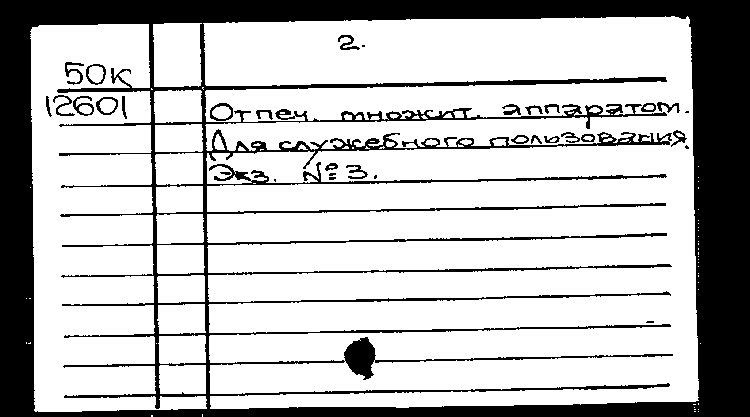 2.
50к
12601
Отпеч. множит. аппаратом.
Для служебного пользования.
Экз. № 3.